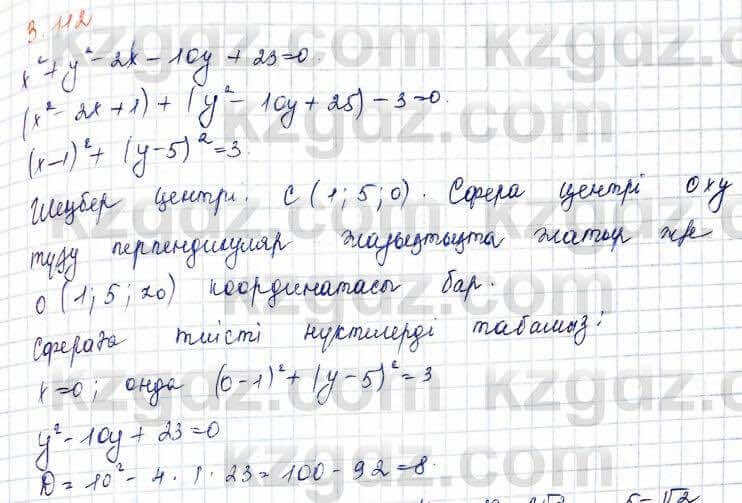 3.112
x² + y² - 2x - 10y + 23 = 0.
(x² - 2x + 1) + (y² - 10y + 25) - 3 = 0.
(x-1)² + (y-5)² = 3.
Шеңбер центрі. C (1; 5; 0). Сфера центрі Oxy
түзу перпендикуляр жазықтықта жатыр және
O (1; 5; z₀) координатасы бар.
Сфераға тиісті нүктелерді табамыз:
x = 0; онда (0-1)² + (y-5)² = 3
y² - 10y + 23 = 0
D = 10² - 4 · 1 · 23 = 100 - 92 = 8.
5-√2
kzgdz.com